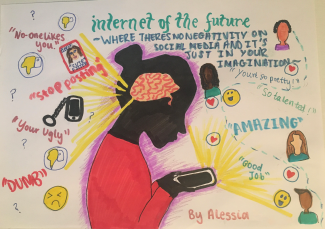 internet of the future
- WHERE THERES NO NEGATIVITY ON
SOCIAL MEDIA AND IT'S
JUST IN YOUR
IMAGINATION -
"No-one likes
you."
"Stop posting"
"Your Ugly"
"DUMB"
"You're so pretty"
"So talented!"
"AMAZING"
"Good
JOB"
By Alessia